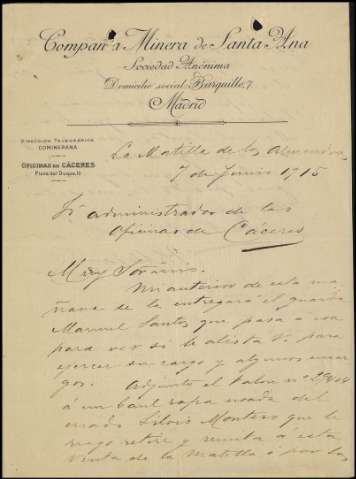 Compañía Minera de Santa Ana
Sociedad Anónima
Domicilio social: Barquillo, 7
Madrid
DIRECCIÓN TELEGRÁFICA
COMINERANA
OFICINAS EN CÁCERES
Plaza del Duque, 11
La Matilla de los Almendros
7 de Junio 1915
Sr administrador de las
Oficinas de Cáceres
Muy Sr mío:
Mi anterior de esta ma-
ñana se la entregará el guarda
Manuel Santos que pasa a esa
para ver si le alista V. para
ejercer su cargo y algunos encar
gos. Adjunto el talon nº
á un baul ropa usada del
criado Silvio Montero que le
ruego retire y remita á esta
venta de la matilla ó por los